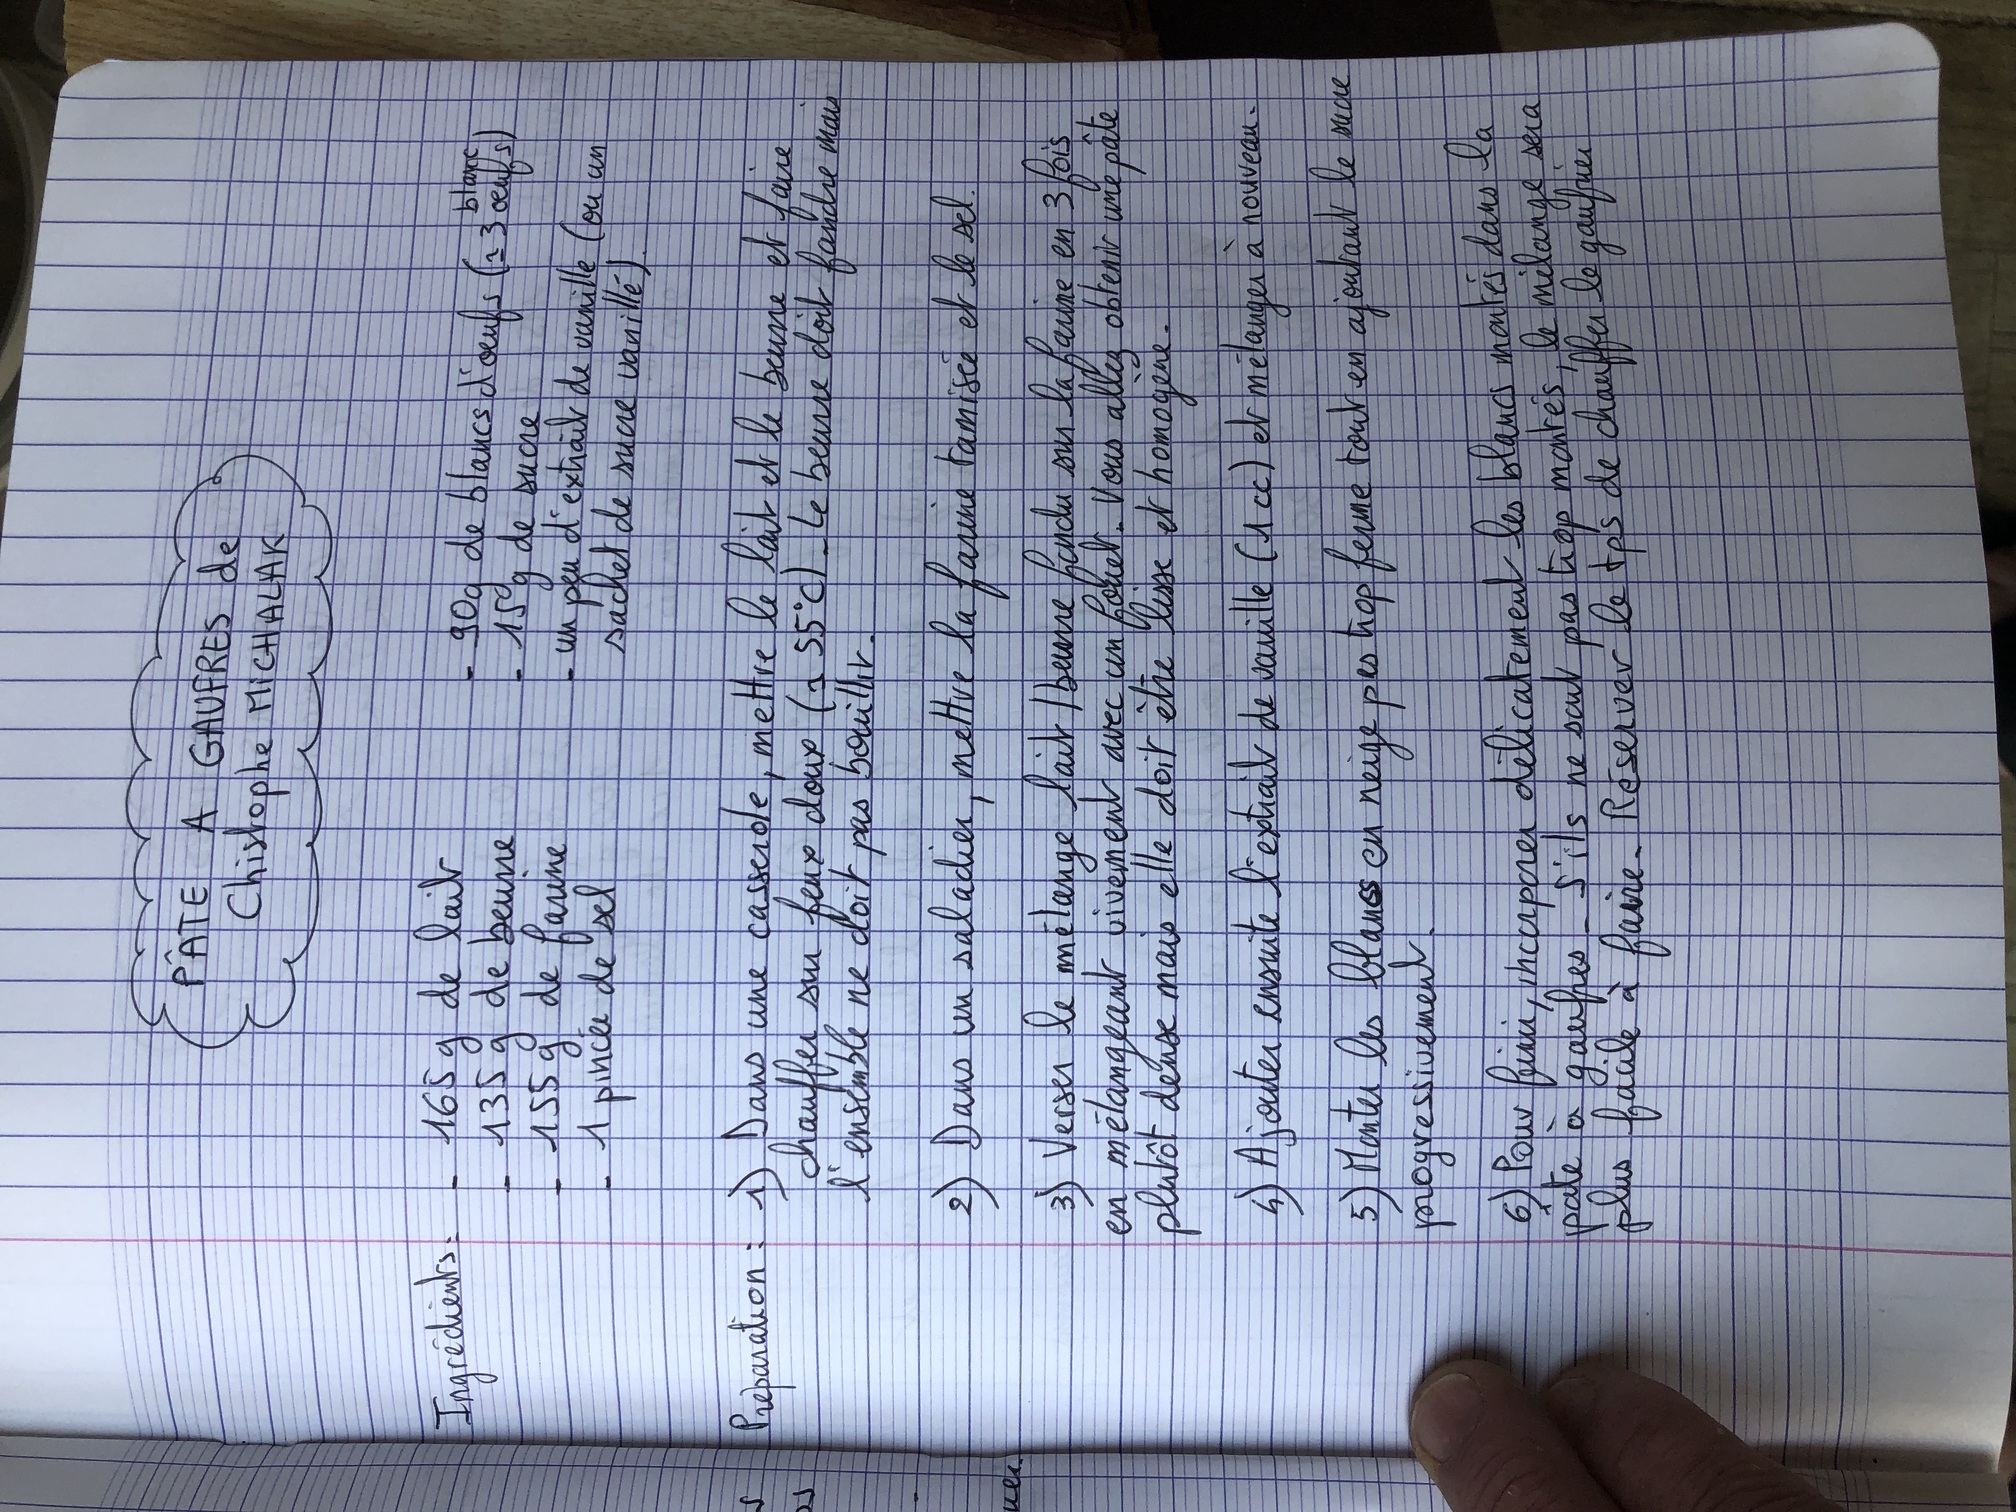 PÂTE A GAUFRES de
Christophe MICHALAK
Ingrédients:
- 165 g de lait
- 135 g de beurre
- 155 g de farine
- 1 pincée de sel
- 90g de blancs d'oeufs (≃ 3 blanc oeufs)
- 15g de sucre
- un peu d'extrait de vanille (ou un
sachet de sucre vanillé).
Préparation: 1) Dans une casserole, mettre le lait et le beurre et faire
chauffer sur feux doux (≃ 55°C) _ Le beurre doit fondre mais
l'ensemble ne doit pas bouillir.
2) Dans un saladier, mettre la farine tamisée et le sel.
3) Verser le mélange lait / beurre fondu sur la farine en 3 fois
en mélangeant vivement avec un fouet. Vous allez obtenir une pâte
plutôt dense mais elle doit être lisse et homogène.
4) Ajouter ensuite l'extrait de vanille (1 cc) et mélanger à nouveau.
5) Monter les blancs en neige pas trop ferme tout en ajoutant le sucre
progressivement.
6) Pour finir, incorporer délicatement les blancs montés dans la
pâte à gaufres _ S'ils ne sont pas trop montés, le mélange sera
plus facile à faire _ Réserver le tps de chauffer le gaufrier